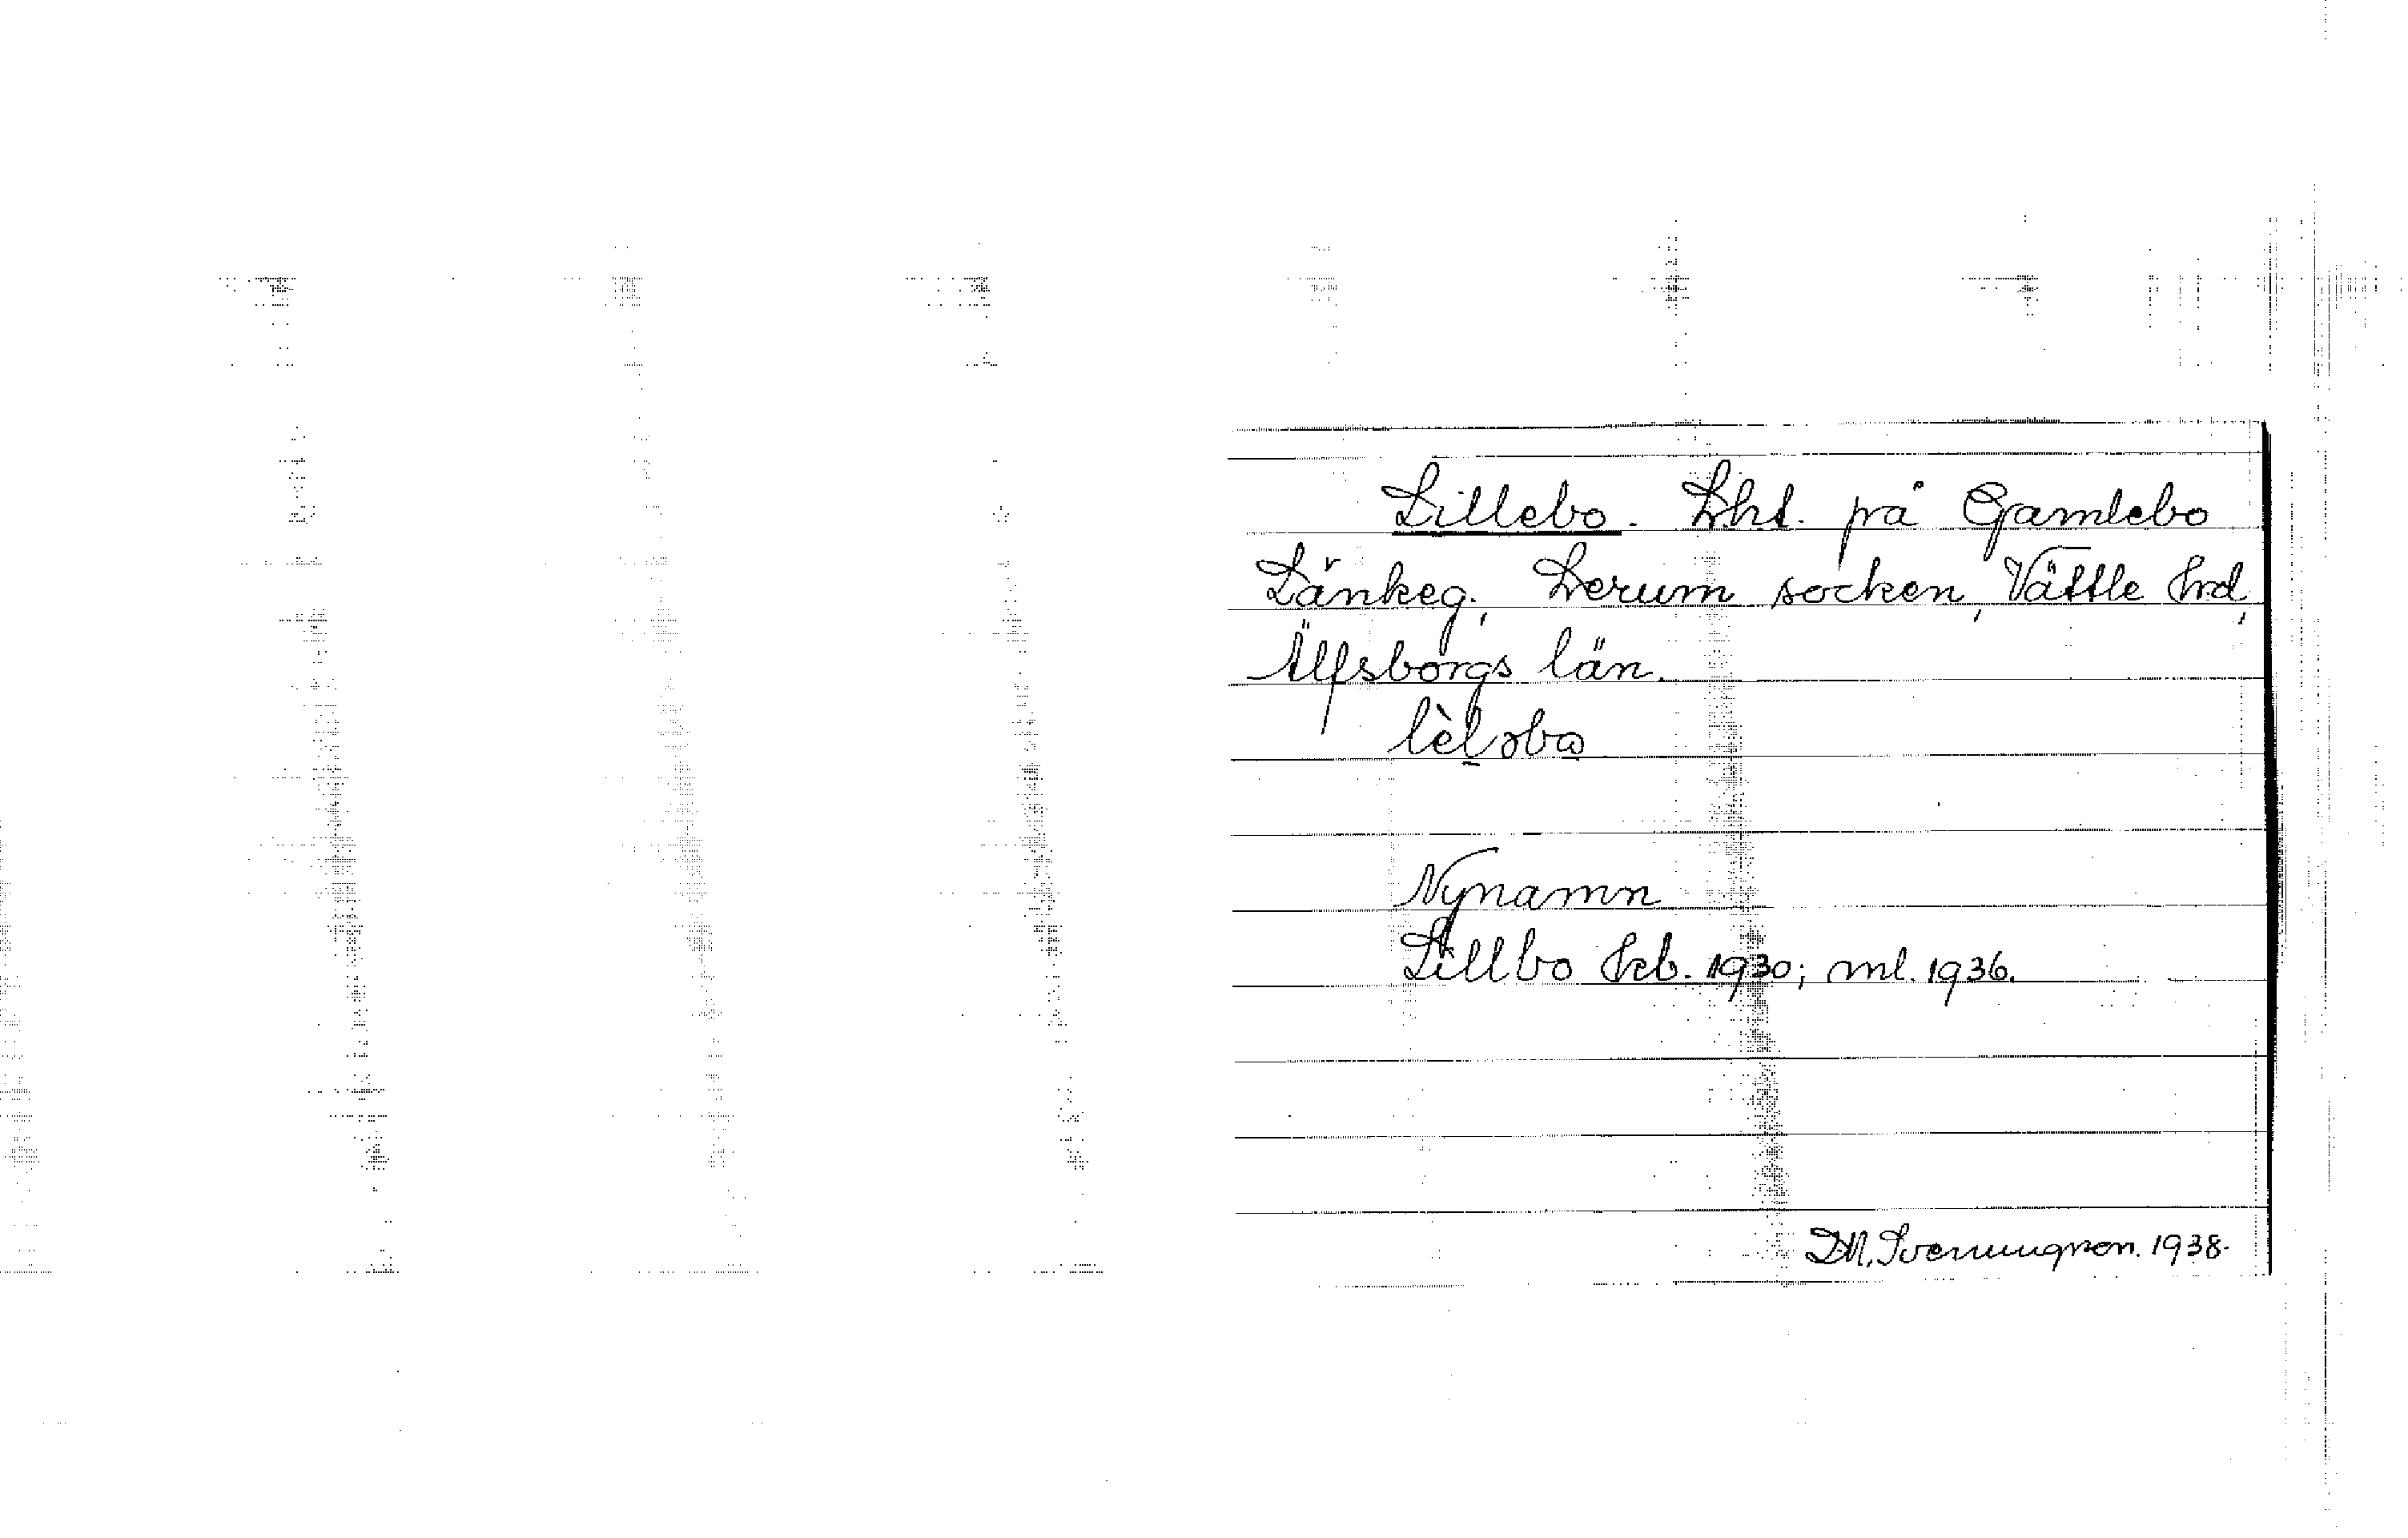 Lillebo. Lht. på Gamlebo
Länkeg., Lerum socken, Vättle hrd,
Älfsborgs län.
lèlǝbo
Nynamn
Lillbo kb. 1930; ml. 1936.
1938.